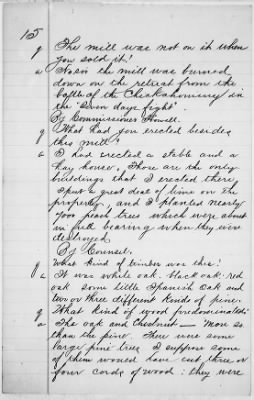 15
q The mill was not on it when
you sold it?
a No sir the mill was burned
down on the retreat from the
battle of the Chickahominy in
the "Seven days fight".
By Commissioner Howell.
q What had you erected besides
this mill?
a I had erected a stable and a
hay house. Those are the only
buildings that I erected there.
I put a great deal of lime on the
property, and I planted nearly
700 peach trees which were about
in full bearing when they were
destroyed
By Counsel.
q What kind of timber was this?
a It was white oak, black oak, red
oak some little Spanish oak and
two or three different kinds of pine.
q What kind of wood predominated?
a The oak and Chestnut — more so
than the pine. There were some
large pine trees. I suppose some
of them would have cut three or
four cords of wood; they were